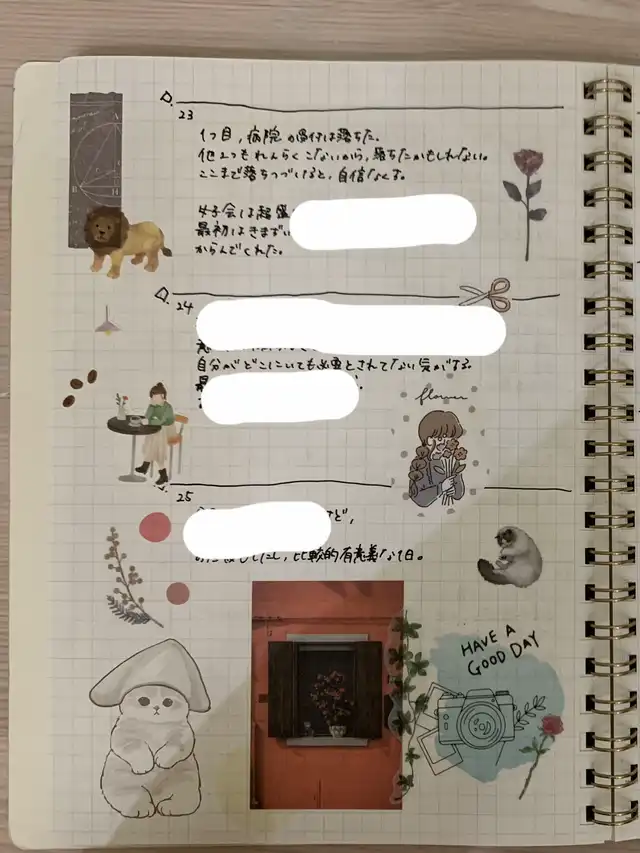 23
1つ目、病院の受付は落ちた。
他2つもれんらくこないから、落ちたかもしれない。
ここまで落ちつづけると、自信なくす。
女子会は超
最初はきまずい
からんでくれた。
24
自分がどこにいても必要とされてない気がする。
最
flower
25
ど、
したし、比較的有意義な1日。
HAVE A
GOOD DAY